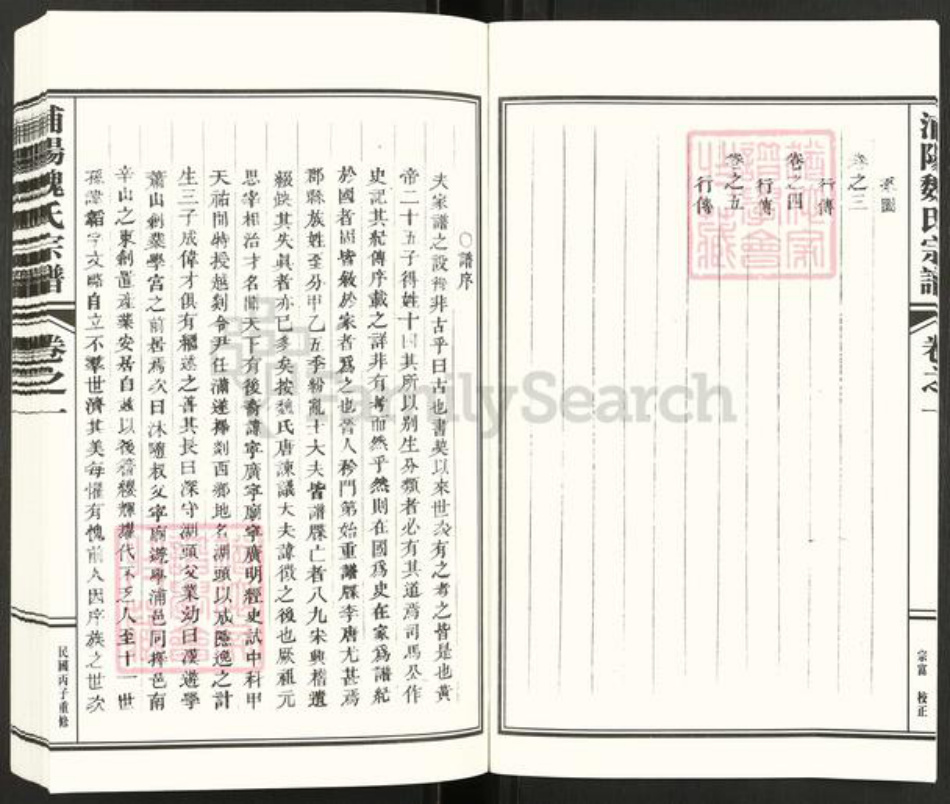 浦陽魏氏宗譜
卷之一
宗富 校正
系圖
卷之三
行傳
卷之四
行傳
卷之五
行傳
○譜序
夫家譜之設非古乎曰古也書契以來世次有之考之皆是也黃
帝二十五子得姓十四其所以別生分類者必有其道焉司馬公作
史記其紀傳序載之詳非有考而然乎然則在國爲史在家爲譜紀
於國者固皆敘於家者爲之也晉人矜門第始重譜牒李唐尤甚焉
郡縣族姓至分甲乙五季紛亂士大夫皆譜牒亡者八九宋興稽遺
綴缺其失眞者亦已多矣按魏氏唐諫議大夫諱徵之後也厥祖元
思宰相治才名聞天下有後裔諱寧廣寧廟寧廣明經史試中科甲
天祐間特授越剡令尹任滿遂擇剡西鄉地名湖頭以成隱逸之計
生三子成偉才俱有繼述之善其長曰深守湖頭父業幼曰漢遊學
蕭山創業學宮之前居焉次曰沐隨叔父寧廟遊學浦邑同擇邑南
辛山之東創置産業安居自適以後簪纓輝耀代不乏人至十一世
孫諱霜字文略自立不羣世濟其美每懼有愧前人因序族之世次
浦陽魏氏宗譜
卷之一
民國丙子重修
FamilySearch